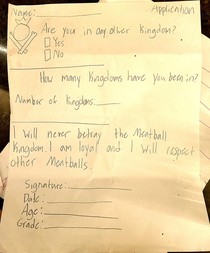 Name: Application
Are you in any other kingdom?
Yes
No
How many Kingdoms have you been in?
Number of Kingdoms:
I will never betray the Meatball
Kingdom. I am loyal and I will respect
other Meatballs.
Signature:
Date:
Age:
Grade: